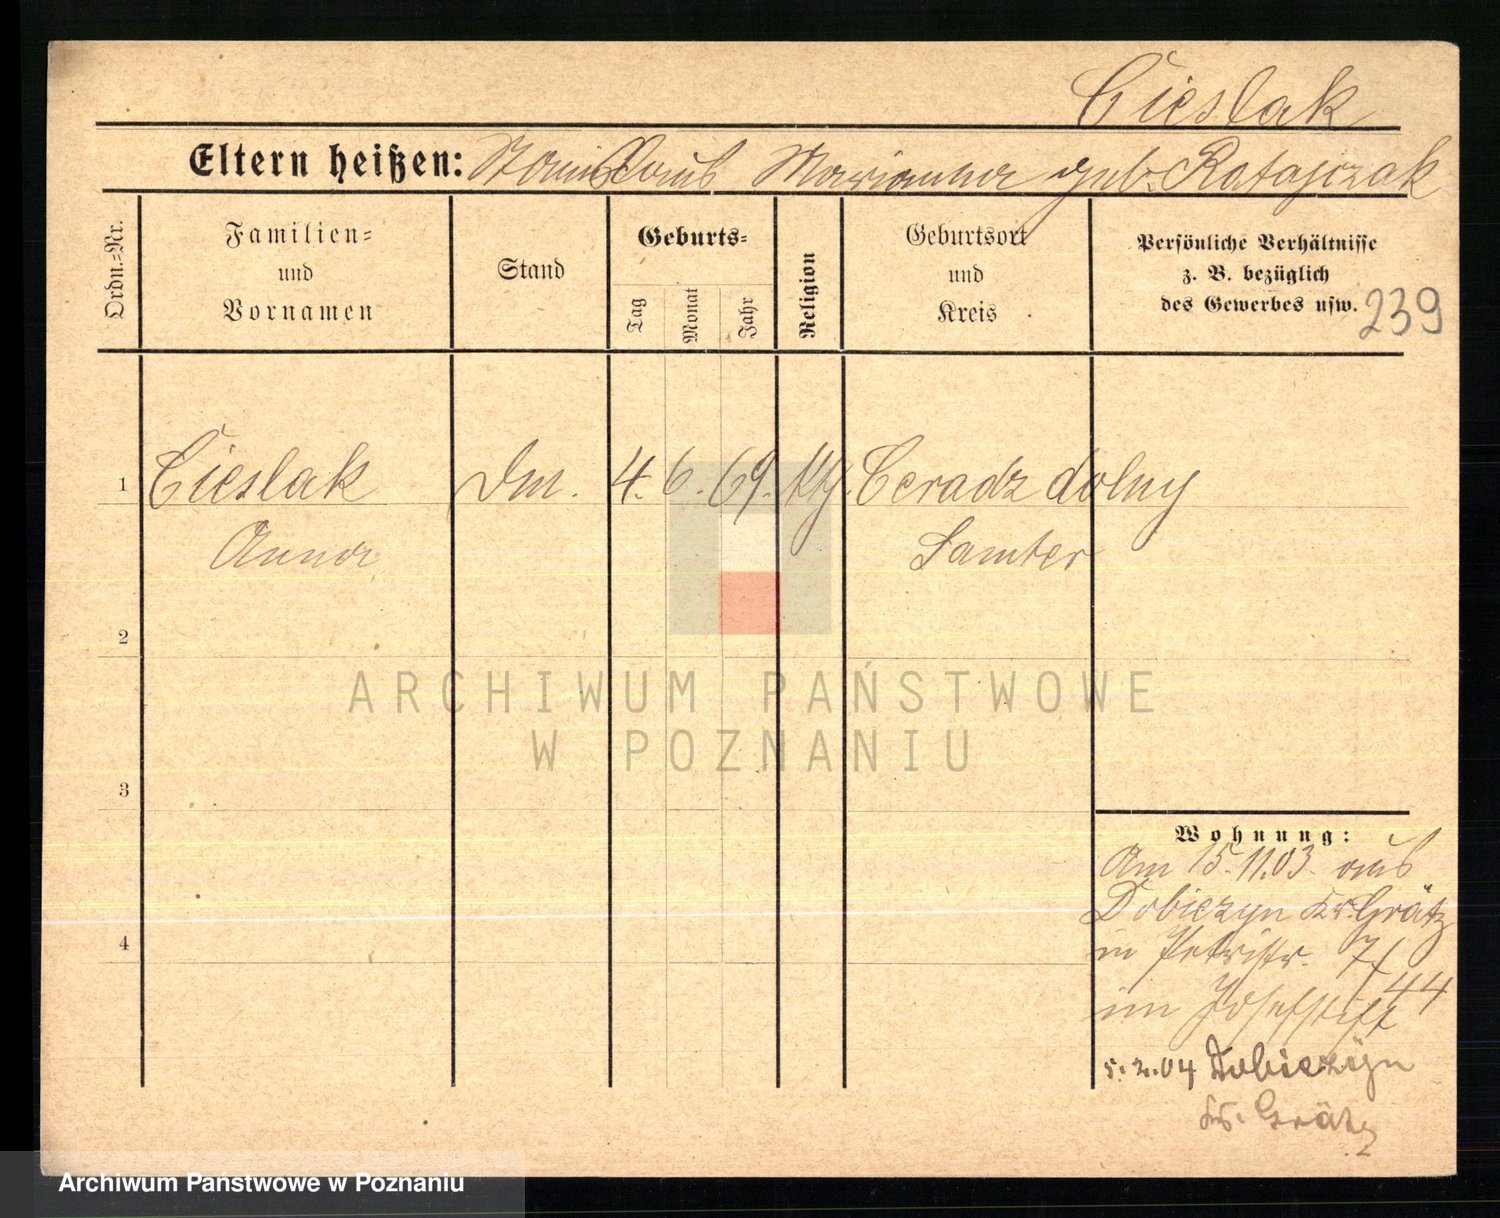 Cieslak
Eltern heißen: Stanislaus Marianna geb. Ratajczak
Ordn.-Nr.
Familien-
und
Vornamen
Stand
Geburts-
Tag
Monat
Jahr
Religion
Geburtsort
und
Kreis
Persönliche Verhältnisse
z. B. bezüglich
des Gewerbes usw.
239
1 Cieslak 4. 6. 69. kth. Ceradz dolny
Anna Samter
2
3
4
Wohnung:
Am 15.11.03. aus
Dobiezyn Kr. Grätz
in Petristr. 7/
44
im Josefstift
5.2.04 Dobiezyn
Kr. Grätz
ARCHIWUM PAŃSTWOWE
W POZNANIU
Archiwum Państwowe w Poznaniu